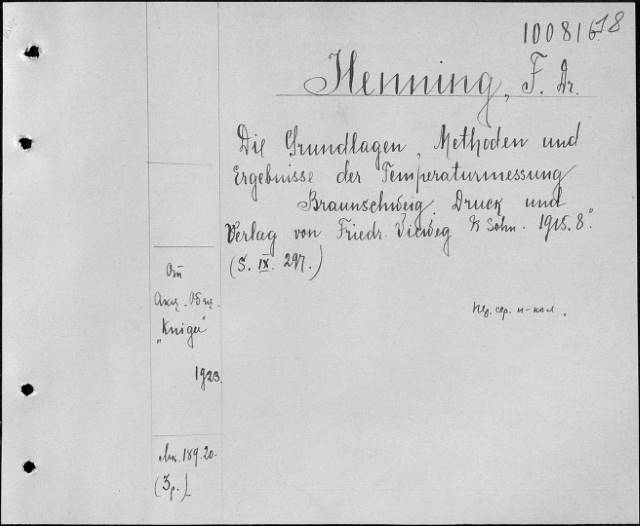 1008167 8
Henning, F. Dr.
Die Grundlagen, Methoden und
Ergebnisse der Temperaturmessung
Braunschweig. Druck und
Verlag von Friedr. Vieweg & Sohn. 1915. 8°.
(S. IX. 297.)
От
Акц. Общ.
"Книга"
1923.
189.20
(3р.)